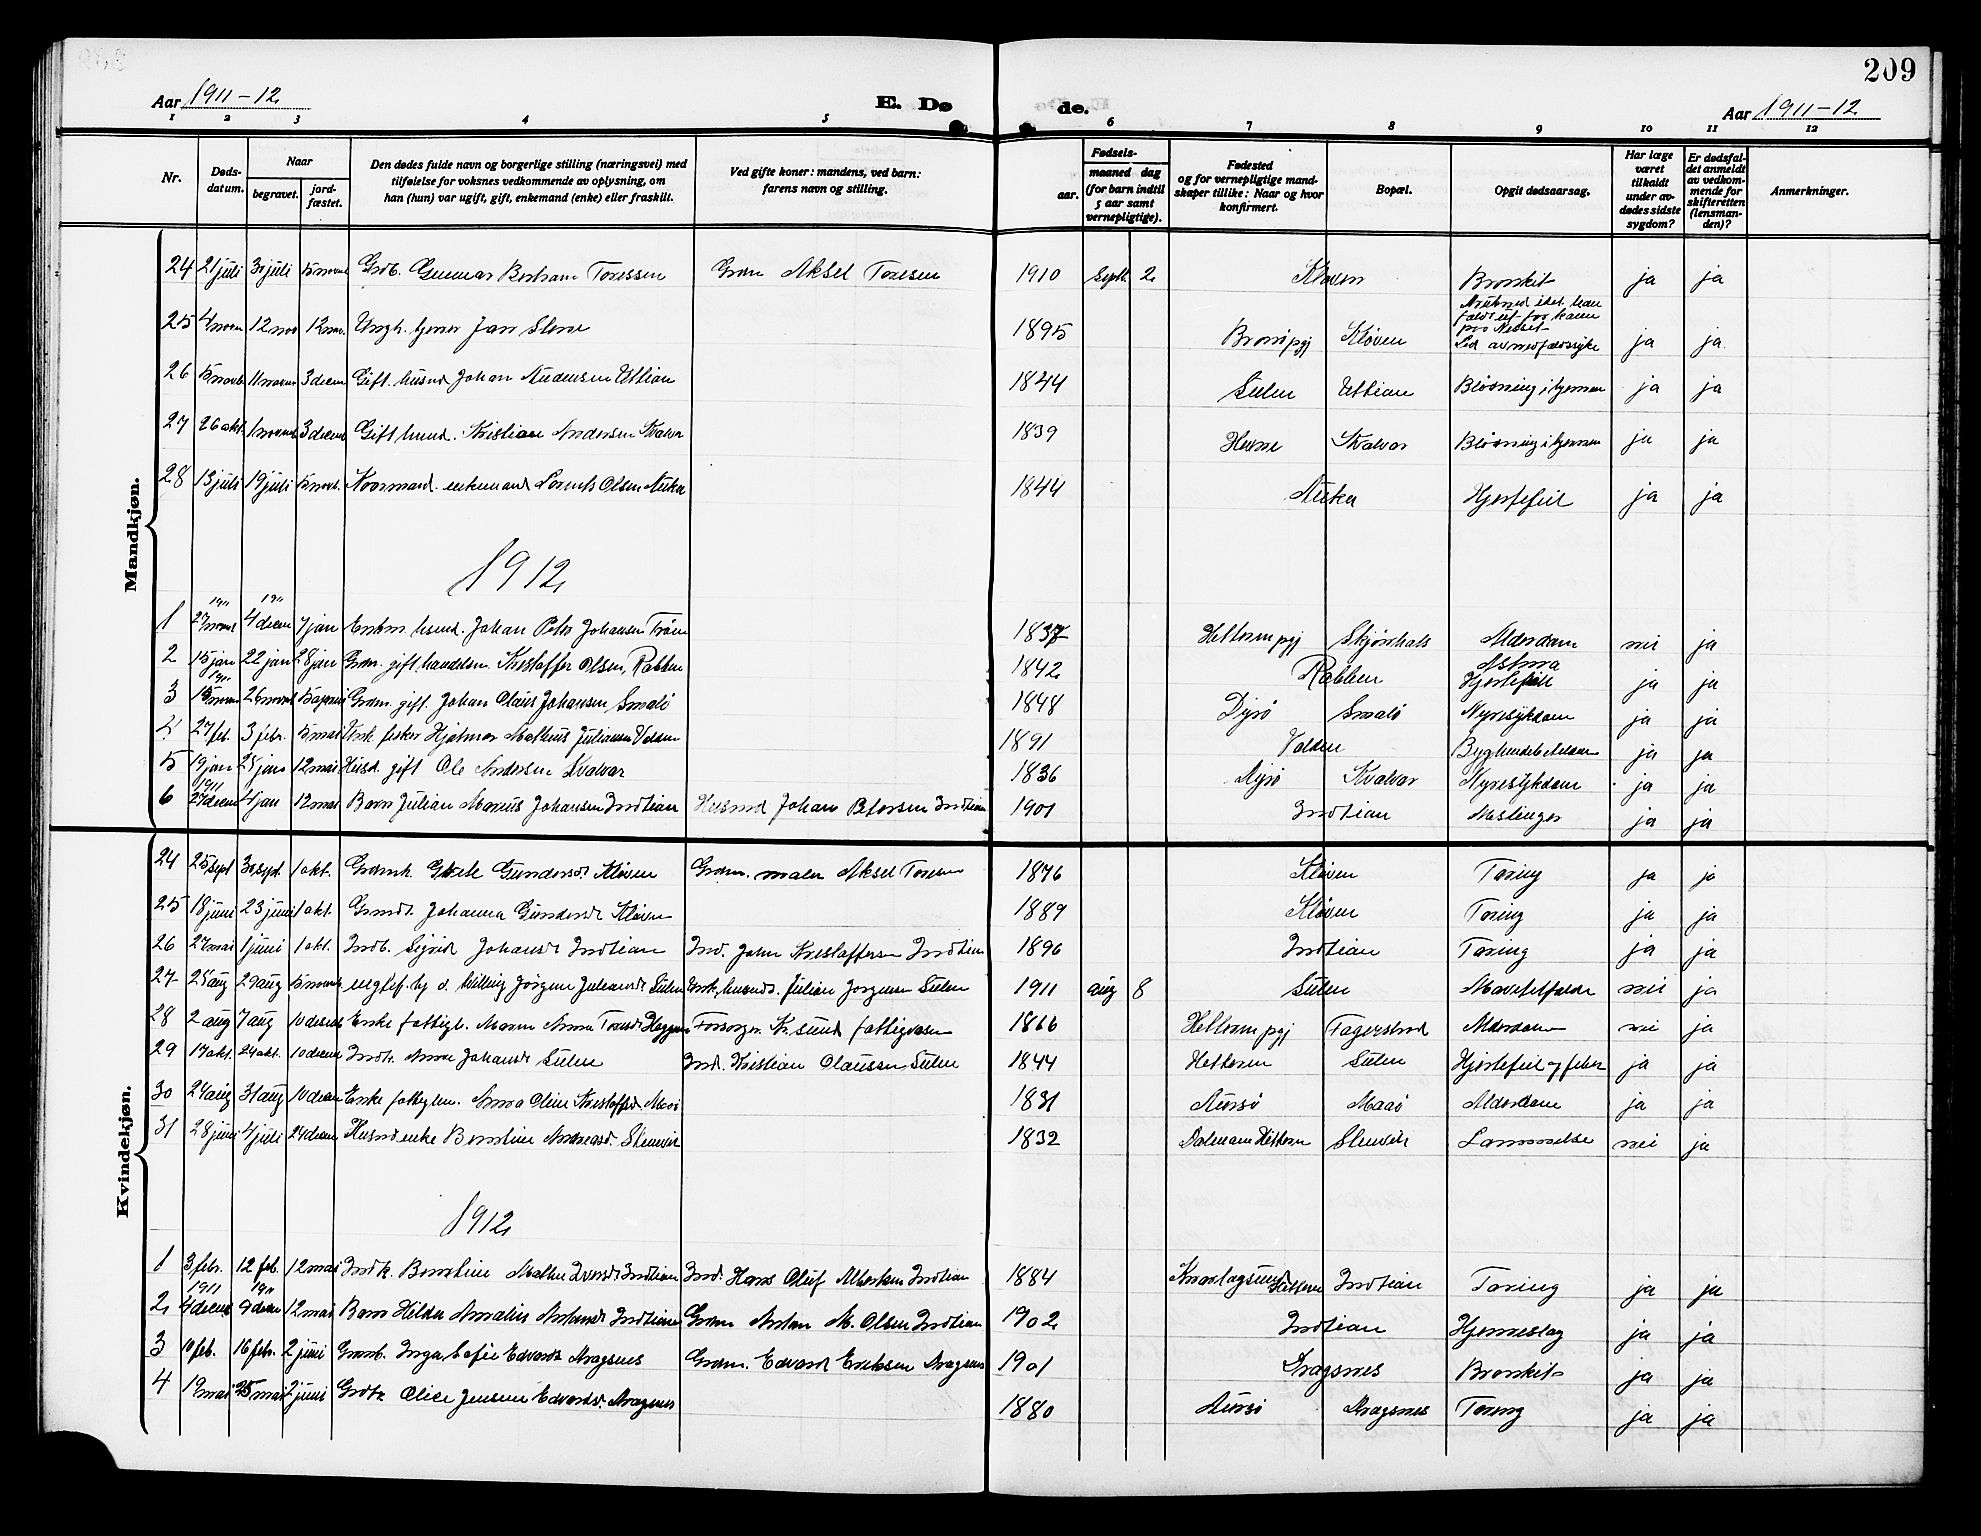 209
Aar 1911-12. E. Dø de. Aar 1911-12.
1 2 3 4 5 6 7 8 9 10 11 12
Nr. Døds-datum. Naar begravet. jord-fæstet. Den dødes fulde navn og borgerlige stilling (næringsvei) med tilføielse for voksnes vedkommende av oplysning, om han (hun) var ugift, gift, enkemand (enke) eller fraskilt. Ved gifte koner: mandens, ved barn: farens navn og stilling. Fødsels- aar. maaned dag (for barn indtil 5 aar samt vernepligtige). Fødested og for vernepligtige mand-skaper tillike: Naar og hvor konfirmert. Bopæl. Opgit dødsaarsag. Har læge været tilkaldt under av-dødes sidste sygdom? Er dødsfal-det anmeldt av vedkom-mende for skifteretten (lensman-den)? Anmerkninger.
Mandkjøn.
24 21 juli 30 juli 15 novm Grdb. Gunnar Bertram Toressen Grdm Aksel Toresen 1910 Septb. 2. Kløven Bronkit ja ja
25 4 novm 12 nov 12 nov. Ungk. tjener 1895 Kløven ja ja
26 15 novb 11 novm 3 decm Gift. husmd Johan Uttian 1844 Sulen Uttian Blødning i hjernen ja ja
27 26 okt. 1 novmb 3 decm Gift husmd. Kristian Andersen Kvalvær 1839 Hevne Kvalvær Blødning i hjernen ja ja
28 13 juli 19 juli 15 novb. enkemand Lorents Olsen 1844 Hjertefeil ja ja
1912
1 1911 27 novmb 1911 4 decm 7 jan Enkm husmd. Johan Peter Johansen 1837 Hitteren pgj Alderdom nei ja
2 15 jan 22 jan 28 jan Grdm. gift. handelsm. Kristoffer Olsen, Rabben 1842 Rabben Astma Hjertefeil ja ja
3 1911 15 novm 26 novmb Grdm. gift Johan Claus Johansen Smalø 1848 Dyrø Smalø Nyresykdom ja ja
4 27 feb. 3 febr. 15 mai Ynk fisker Hjalmar Julianson Valden 1891 Valden ja ja
5 19 jan 25 jan 12 mai Husd. gift Ole Andersen Kvalvær 1836 Kvalvær Nyresykdom ja ja
6 1911 27 decm 4 jan 12 mai Barn Julian Marius Johansen Indtian Husmd Johan Petersen Indtian 1901 Indtian Meslinger ja ja
Kvindekjøn.
24 25 sept 30 sept. 1 okt. Grdmk. Gundersd. Kløven Grdm. maler Aksel Toresen 1876 Kløven Tæring ja ja
25 18 juni 23 juni 1 okt. Grmdt. Johanna Gundersd. Kløven 1889 Kløven Tæring ja ja
26 27 mai 1 juni 1 okt. Indb. Sigrid Johansd. Indtian Ind. John Kristoffersen Indtian 1896 Indtian Tæring ja ja
27 25 aug 29 aug 15 novmb Jørgine Juliansd. Sulen Enk. husmd. Julian Jørgensen Sulen 1911 aug 8 Sulen nei ja
28 2 aug 7 aug 10 decmb Enke fattigl. Maren Anna Toresd. Heggen Forsørger Kr. sund fattigvæsen 1866 Hitteren pgj Fagerstrand Alderdom nei ja
29 17 okt. 24 okt. 10 decm Indk. Anna Johansd. Sulen Ind. Kristian Claussen Sulen 1844 Hitteren Sulen Hjertefeil og feber ja ja
30 24 aug 31 aug 10 decm Enke fattiglem. Anna Oline Kristoffersd. Maaø 1831 Maaø Alderdom ja ja
31 28 juni 4 juli 24 decm Husmd enke Berntine Andreasd. Stenvik 1832 Dolm am Hitteren Stenvik Lammelse nei ja
1912
1 3 febr. 12 feb. 12 mai Indk. Berntine Malene Iversd. Indtian Ind. Hans Oluf Albertsen Indtian 1884 Knarlagsund Hitteren Indtian Tæring ja ja
2 1911 4 decmb 1911 9 decm 12 mai Barn Hilda Amalie Antonsd. Indtian Grdm Anton M. Olsen Indtian 1902 Indtian Hjerneslag ja ja
3 10 feb. 16 febr. 2 juni Grdmb. Inga Sofie Edvardsd. Dragsnes Grdm. Edvard Eriksen Dragsnes 1901 Dragsnes Bronkit ja ja
4 19 mai 25 mai 2 juni Olice Jensine Edvardsd. Dragsnes 1880 Dragsnes Tæring ja ja